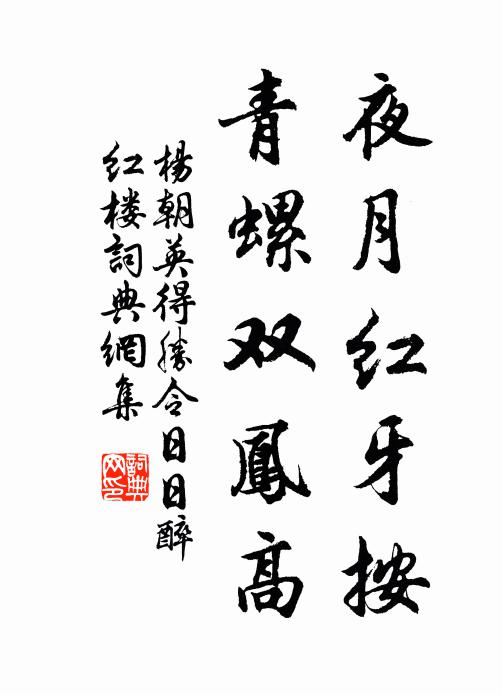 夜月红牙按
青螺双鳳高
楊朝英得勝令日日醉
红楼詞典網集
詞典网印